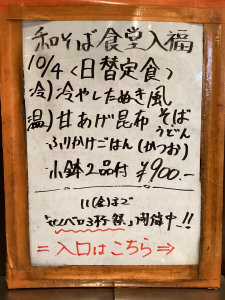 和そば食堂入福
10/4〈日替定食〉
冷)冷やしたぬき風
温)甘あげ昆布そば
うどん
ふりかけごはん(かつお)
小鉢2品付 ¥900.-
11(金)まで
「せんべろ3杯祭」開催中!!
=入口はこちら⇒